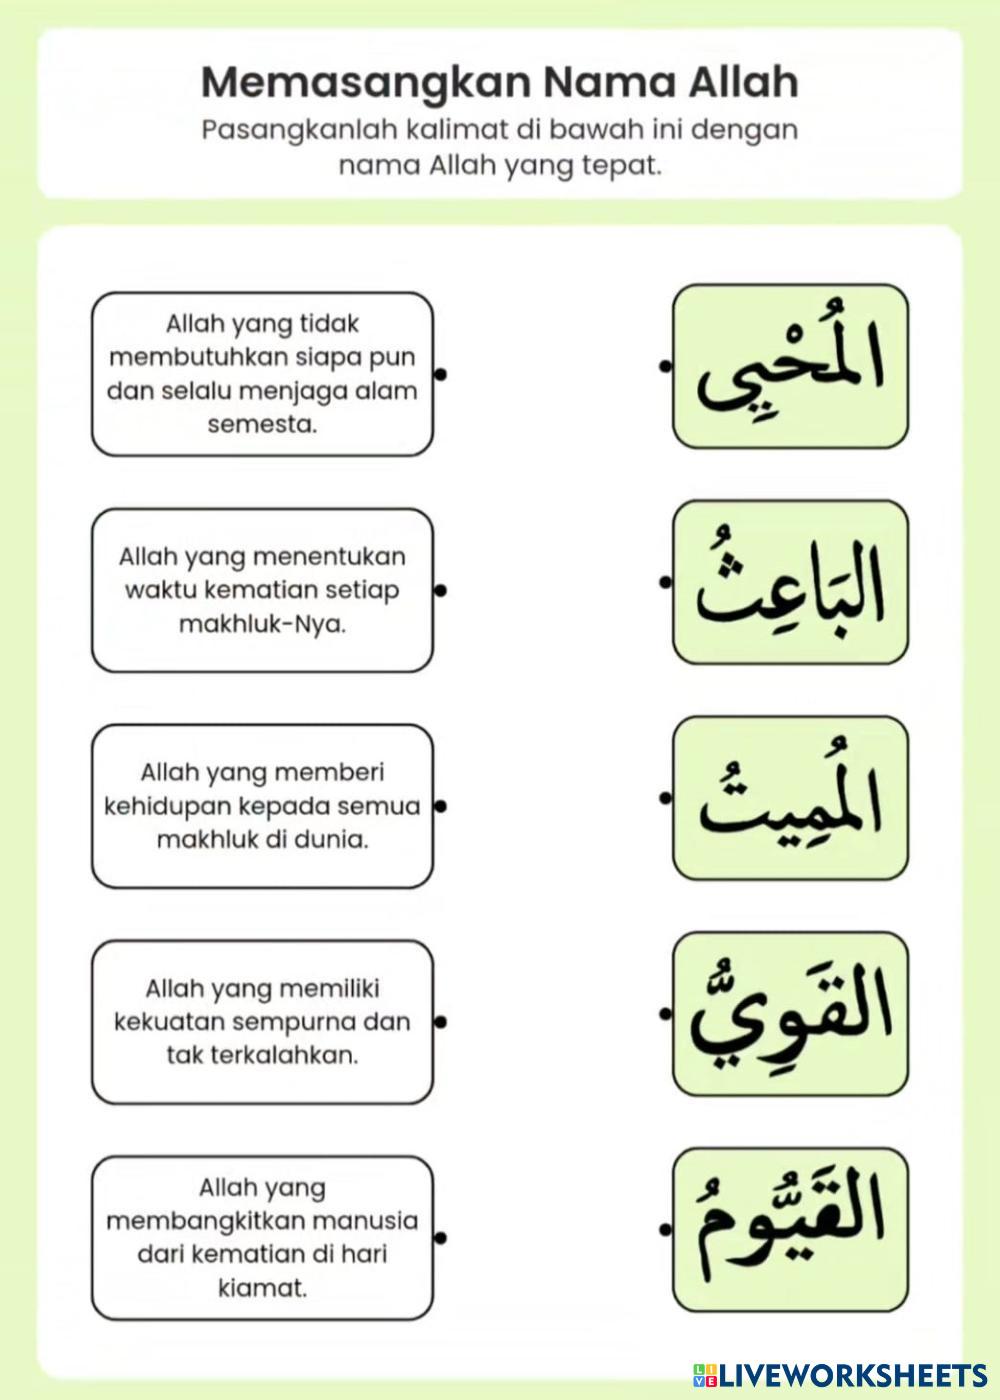 Memasangkan Nama Allah
Pasangkanlah kalimat di bawah ini dengan
nama Allah yang tepat.
Allah yang tidak
membutuhkan siapa pun
dan selalu menjaga alam
semesta.
المُحْيِي
Allah yang menentukan
waktu kematian setiap
makhluk-Nya.
البَاعِثُ
Allah yang memberi
kehidupan kepada semua
makhluk di dunia.
المُمِيتُ
Allah yang memiliki
kekuatan sempurna dan
tak terkalahkan.
القَوِيُّ
Allah yang
membangkitkan manusia
dari kematian di hari
kiamat.
القَيُّومُ
LIVEWORKSHEETS